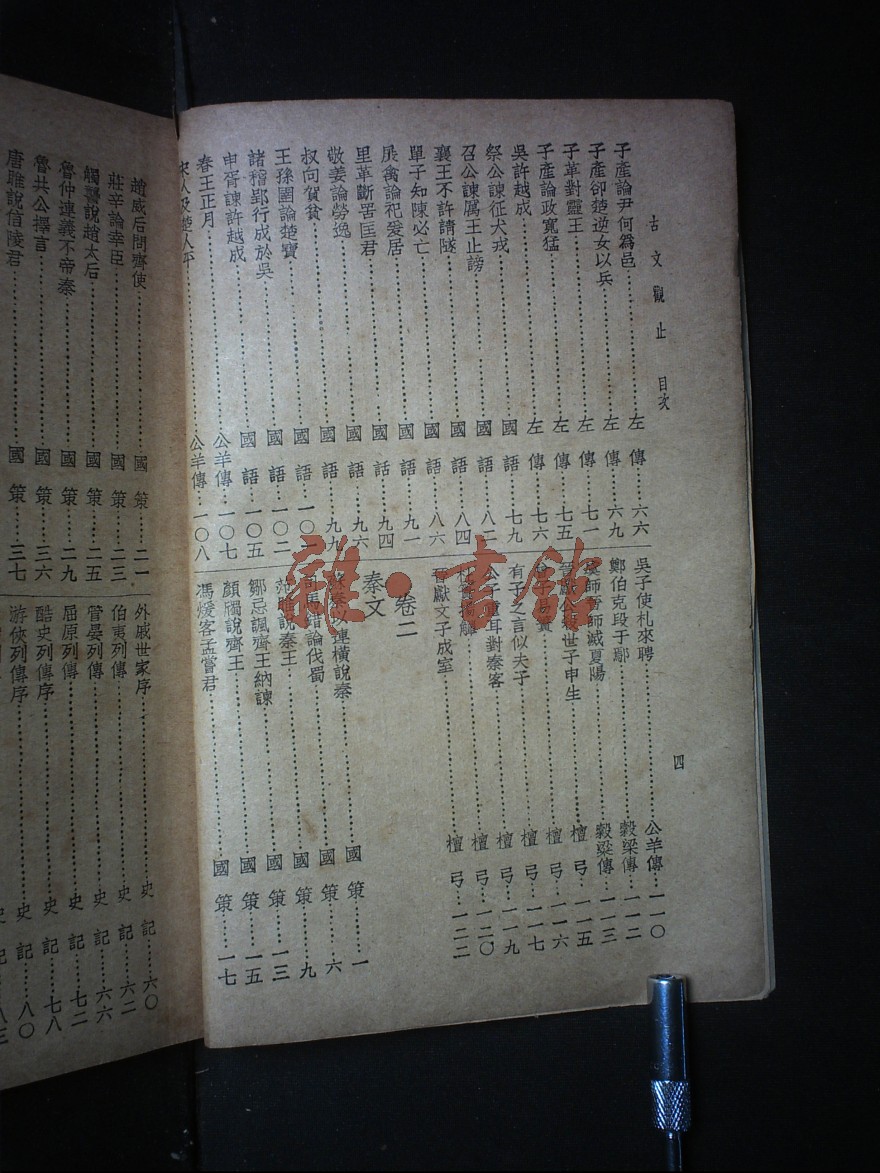 古文觀止 目次
四
子產論尹何爲邑 左傳 六六
子產卻楚逆女以兵 左傳 六九
子革對靈王 左傳 七一
子產論政寬猛 左傳 七五
吳許越成 左傳 七六
祭公諫征犬戎 國語 七九
召公諫厲王止謗 國語 八二
襄王不許請隧 國語 八四
單子知陳必亡 國語 八六
展禽論祀爰居 國語 九一
里革斷罟匡君 國話 九四
敬姜論勞逸 國語 九六
叔向賀貧 國語 九九
王孫圉論楚寶 國語 一〇
諸稽郢行成於吳 國語 一〇二
申胥諫許越成 國語 一〇五
春王正月 公羊傳 一〇七
宋人及楚人平 公羊傳 一〇八
吳子使札來聘 公羊傳 一一〇
鄭伯克段于鄢 穀梁傳 一一二
虞師晉師滅夏陽 穀梁傳 一一三
晉獻公殺世子申生 檀弓 一一五
曾子易簀 檀弓 一一六
有子之言似夫子 檀弓 一一七
公子重耳對秦客 檀弓 一一九
杜蕢揚觶 檀弓 一二〇
晉獻文子成室 檀弓 一二二
卷二
秦文
蘇秦以連橫說秦 國策 一
司馬錯論伐蜀 國策 六
范雎說秦王 國策 九
鄒忌諷齊王納諫 國策 一三
顏斶說齊王 國策 一五
馮煖客孟嘗君 國策 一七
趙威后問齊使 國策 二一
莊辛論幸臣 國策 二三
觸讋說趙太后 國策 二五
魯仲連義不帝秦 國策 二九
魯共公擇言 國策 三六
唐雎說信陵君 國策 三七
外戚世家序 史記 六〇
伯夷列傳 史記 六二
管晏列傳 史記 六六
屈原列傳 史記 七二
酷史列傳序 史記 七八
游俠列傳序 史記 八〇
雜·書館